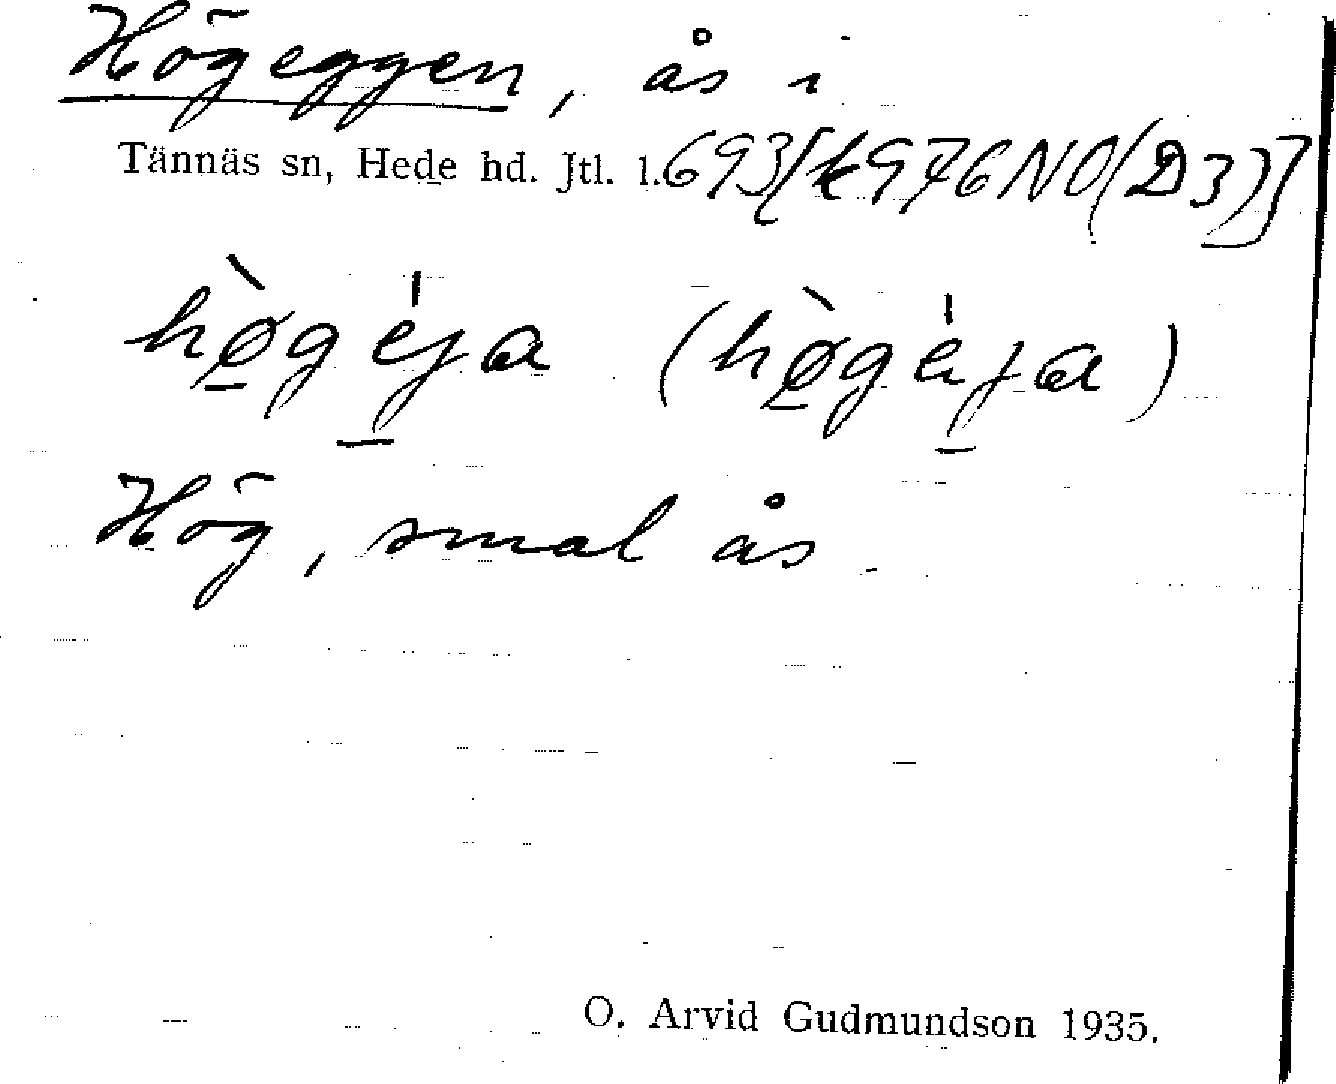 Högeggen, ås i
Tännäs sn, Hede hd. Jtl. l. 693[k976NO(D3)]
hø̀géja (hø̀géja)
Hög, smal ås.
O. Arvid Gudmundson 1935.